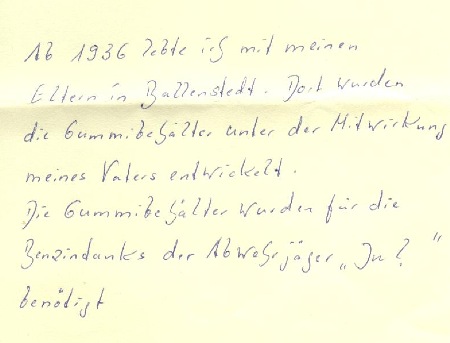 Ab 1936 lebte ich mit meinen
Eltern in Ballenstedt. Dort wurden
die Gummibehälter unter der Mitwirkung
meines Vaters entwickelt.
Die Gummibehälter wurden für die
Benzindanks der Abwehrjäger „Ju ? "
benötigt